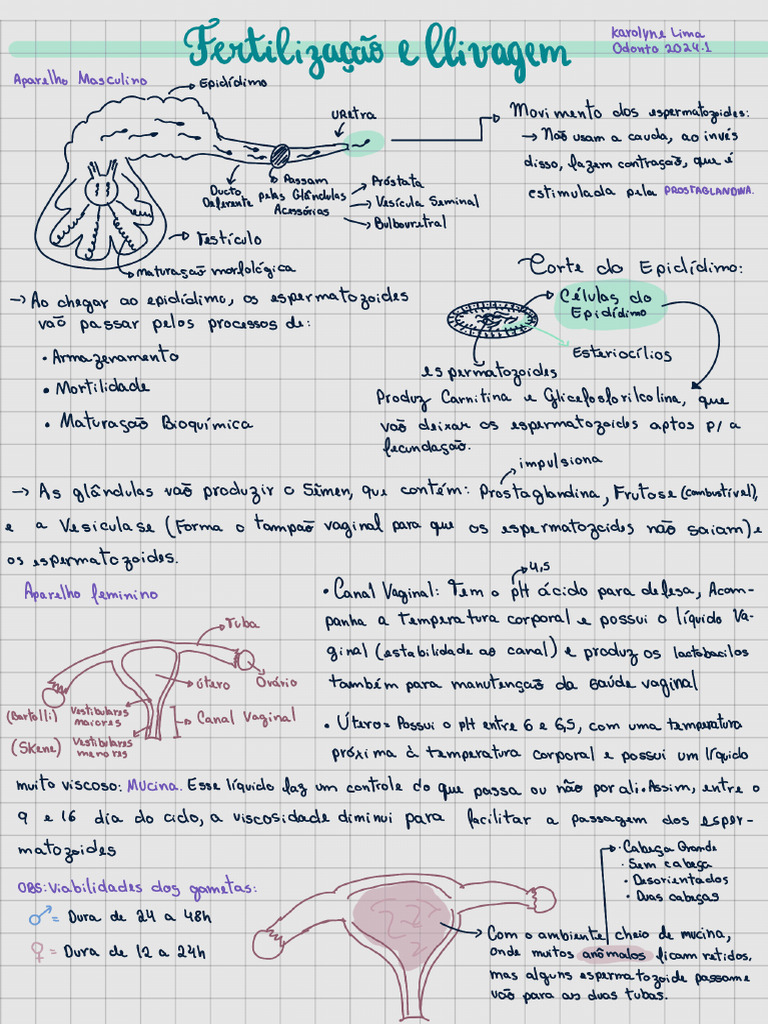 Fertilização e Clivagem
Karolyne Lima
Odonto 2024.1
Aparelho Masculino
Epidídimo
uretra
Ducto
Deferente
Passam
pelas Glândulas
Acessórias
Próstata
Vesícula Seminal
Bulbouretral
Testículo
maturação morfológica
Movimento dos espermatozoides:
→ Não usam a cauda, ao invés
disso, fazem contração, que é
estimulada pela PROSTAGLANDINA.
→ Ao chegar ao epidídimo, os espermatozoides
vão passar pelos processos de:
• Armazenamento
• Mortilidade
• Maturação Bioquímica
Corte do Epidídimo:
Células do
Epidídimo
Esteriocílios
espermatozoides
Produz Carnitina e Glicefosforilcolina, que
vão deixar os espermatozoides aptos p/ a
fecundação.
impulsiona
→ As glândulas vão produzir o Sêmen, que contém: Prostaglandina, Frutose (combustível),
e a Vesiculase (Forma o tampão vaginal para que os espermatozoides não saiam) e
os espermatozoides.
Aparelho feminino
Tuba
Útero
Ovário
(Bartolli)
Vestibulares
maiores
Canal Vaginal
(Skene)
Vestibulares
menores
4,5
• Canal Vaginal: Tem o pH ácido para defesa, Acom-
panha a temperatura corporal e possui o líquido Va-
ginal (estabilidade ao canal) e produz os lactobacilos
também para manutenção da saúde vaginal
• Útero= Possui o pH entre 6 e 6,5, com uma temperatura
próxima à temperatura corporal e possui um líquido
muito viscoso: Mucina. Esse líquido faz um controle do que passa ou não por ali. Assim, entre o
9 e 16 dia do ciclo, a viscosidade diminui para facilitar a passagem dos esper-
matozoides
OBS: Viabilidades dos gametas:
♂= Dura de 24 a 48h
♀= Dura de 12 a 24h
• Cabeça Grande
• Sem cabeça
• Desorientados
• Duas cabeças
Com o ambiente cheio de mucina,
onde muitos anômalos ficam retidos,
mas alguns espermatozoide passam e
vão para as duas tubas.